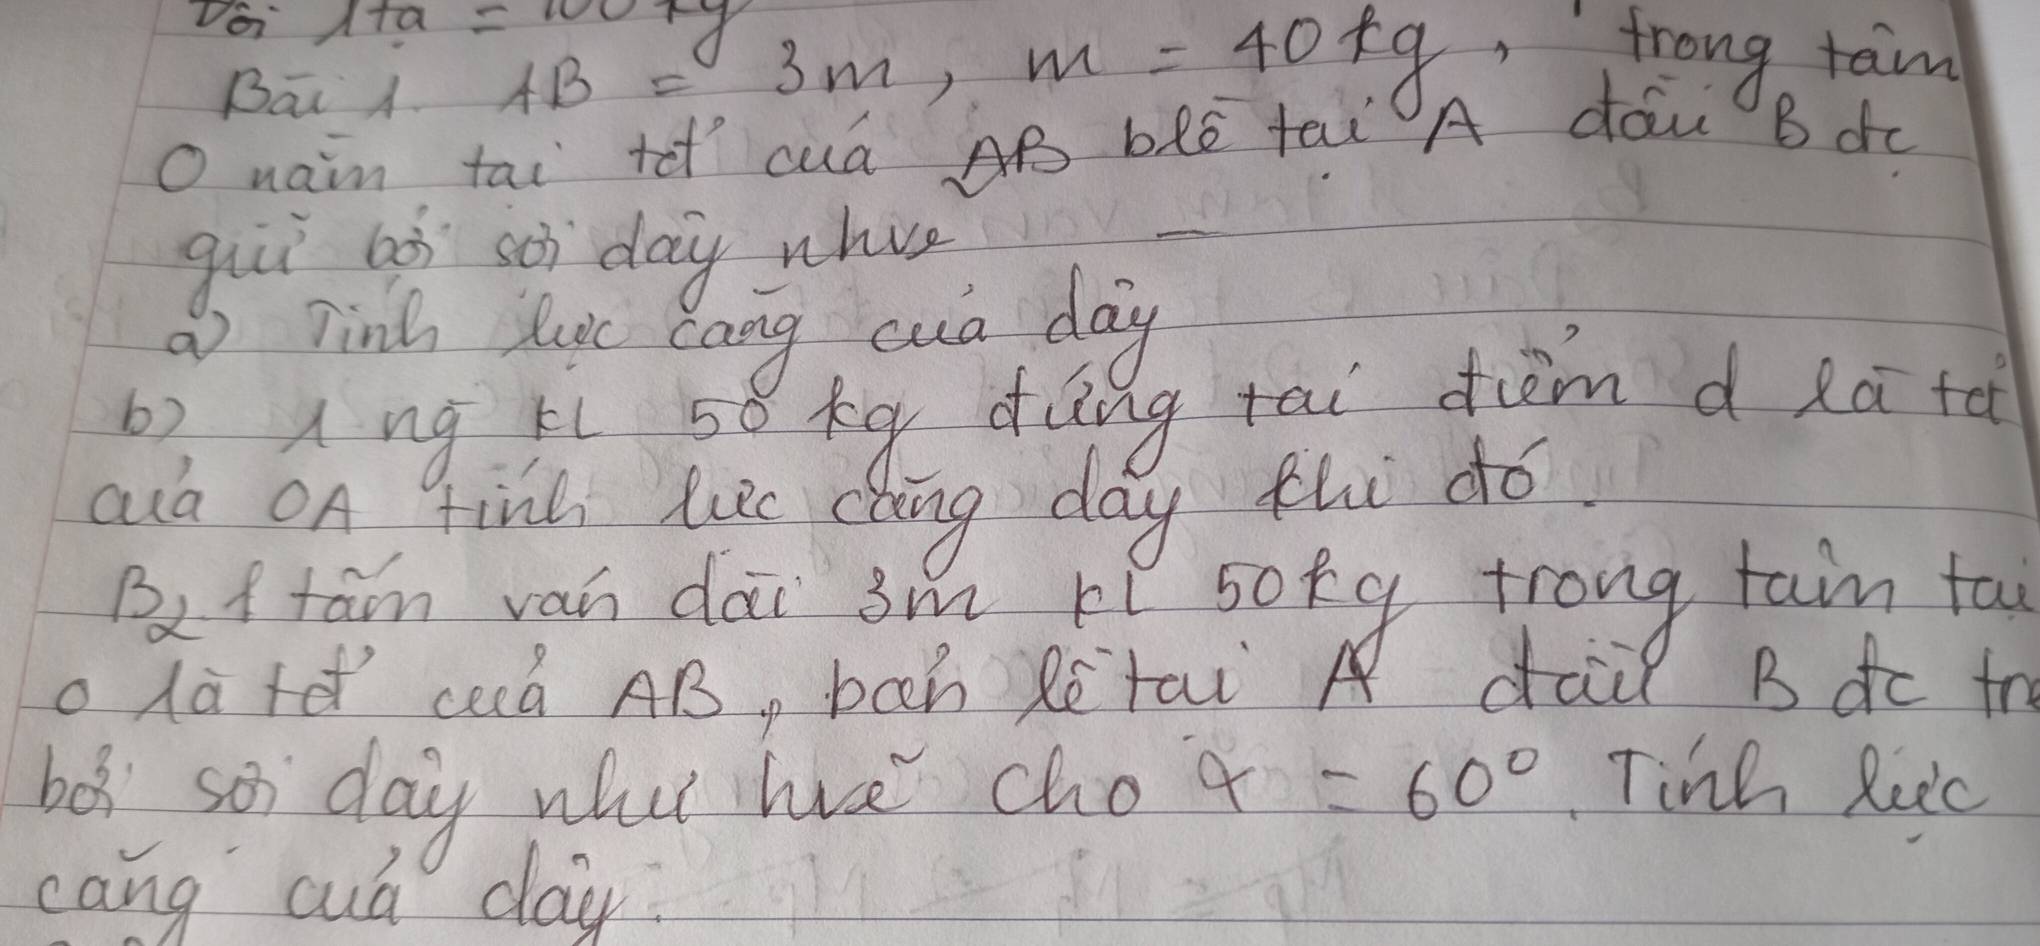 Đổi 1tạ = 100 kg
Bài 1. AB = 3m, m = 40 kg, trong tâm
O nằm tại tđ của AB blề tại A đầu B đc
giữ bởi sợi dây nhve
a) Tính lực căng của dây
b) 1 ng kl 50 kg đứng tại điểm d là tđ
của OA tính lực căng dây khi đó.
B2. 1 tấm ván dài 3m kl 50kg trong tâm tại
O là tđ của AB, bản lề tại A đầu B đc
bởi sợi dây như hvẽ cho α = 60°. Tính lực
căng của dây.